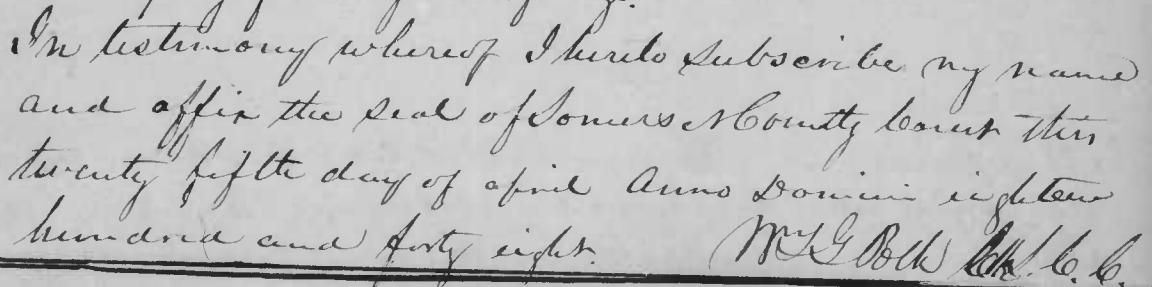 In testimony whereof I hereto subscribe my name
and affix the seal of Somerset County Court this
twenty fifth day of april Anno Domini eighteen
hundred and forty eight. Polk Clk S. C. C.